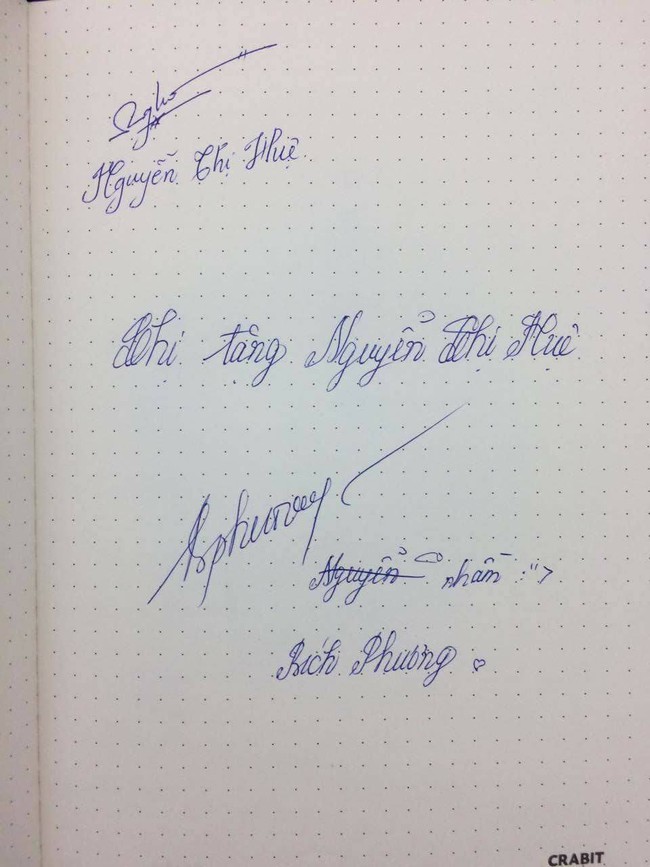 Nguyễn Thị Huệ
Thị tặng Nguyễn Thị Huệ
Bphuong
Nguyễn nhầm :">
Bích Phương ♡
CRABIT